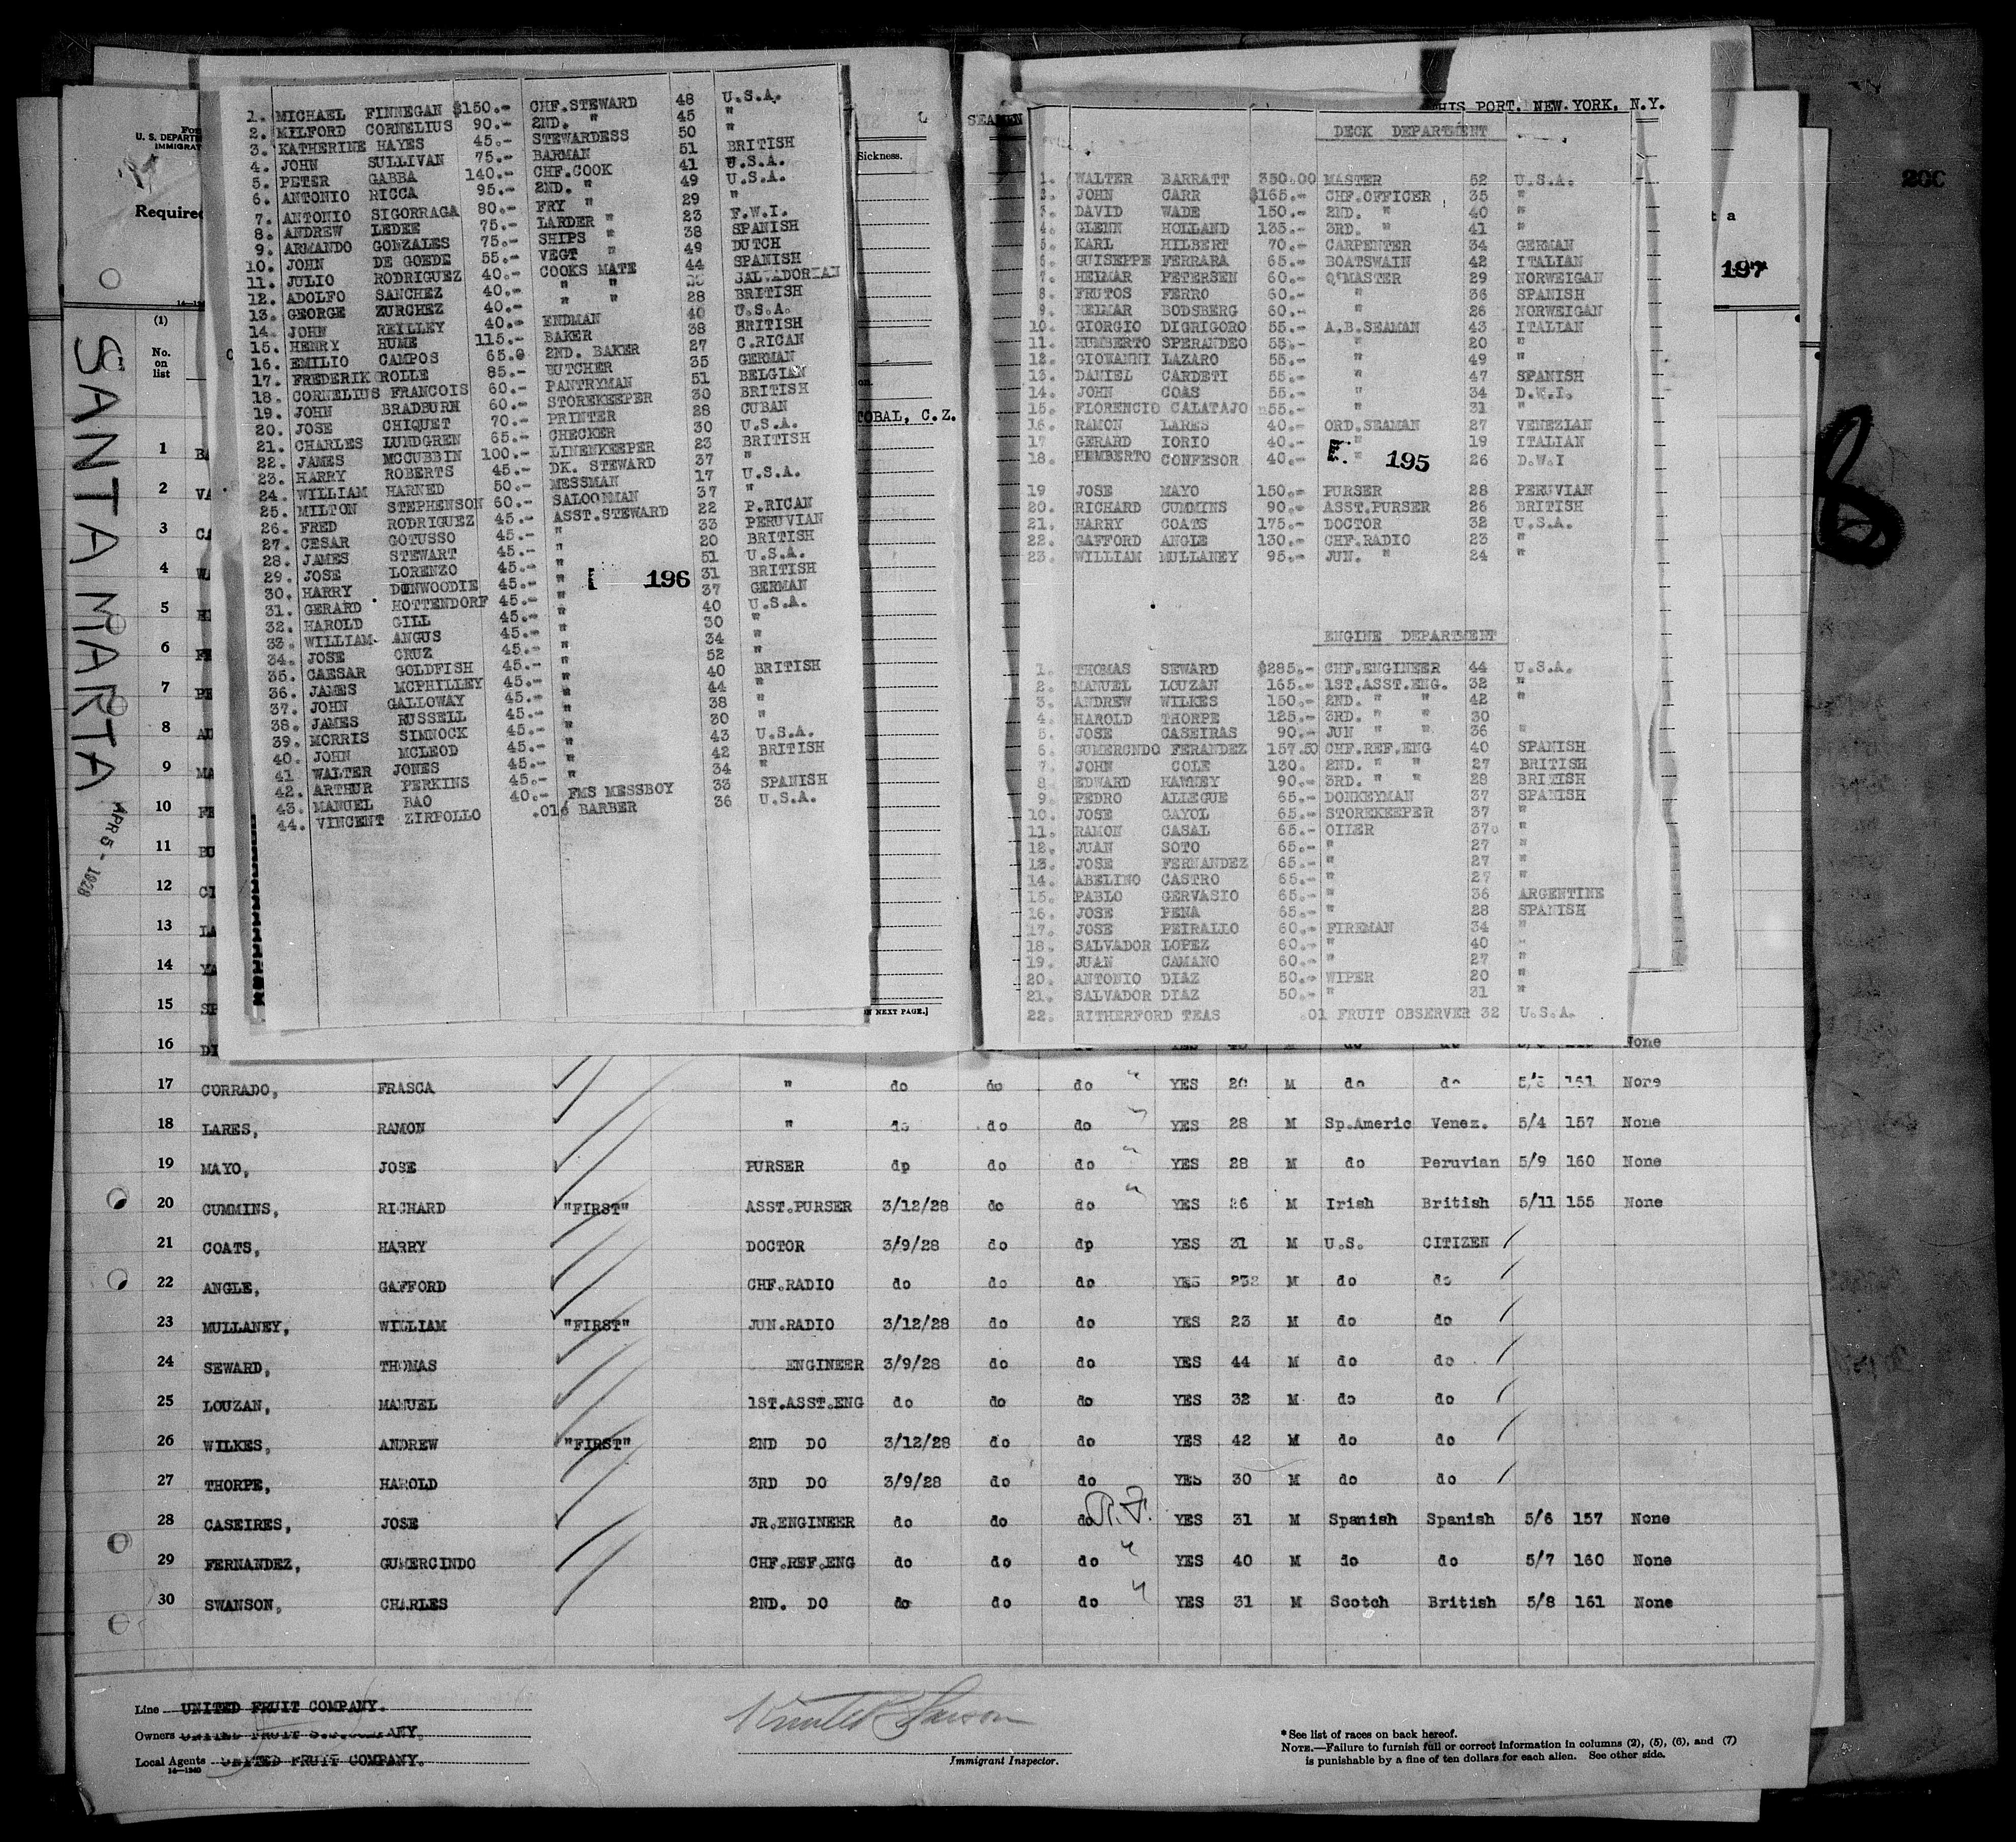 1. MICHAEL FINNEGAN $150.- CHF.STEWARD 48 U.S.A.
2. MILFORD CORNELIUS 90.- 2ND. " 45 "
3. KATHERINE HAYES 45.- STEWARDESS 50 "
4. JOHN SULLIVAN 75.- BARMAN 51 BRITISH
5. PETER GABBA 140.- CHF.COOK 41 U.S.A.
6. ANTONIO RICCA 95.- 2ND. " 49 U.S.A.
7. ANTONIO SIGORRAGA 80.- FRY " 29 "
8. ANDREW LEDEE 75.- LARDER " 23 F.W.I.
9. ARMANDO GONZALES 75.- SHIPS " 38 SPANISH
10. JOHN DE GOEDE 55.- VEGT " 49 DUTCH
11. JULIO RODRIGUEZ 40.- COOKS MATE 44 SPANISH
12. ADOLFO SANCHEZ 40.- " " SALVADORIAN
13. GEORGE ZURCHEZ 40.- " " 28 BRITISH
14. JOHN REILLEY 40.- ENDMAN 40 U.S.A.
15. HENRY HUME 115.- BAKER 38 BRITISH
16. EMILIO CAMPOS 65.0 2ND. BAKER 27 C.RICAN
17. FREDERIK ROLLE 85.- BUTCHER 35 GERMAN
18. CORNELIUS FRANCOIS 60.- PANTRYMAN 51 BELGIAN
19. JOHN BRADBURN 60.- STOREKEEPER 30 BRITISH
20. JOSE CHIQUET 70.- PRINTER 28 CUBAN
21. CHARLES LUNDGREN 65.- CHECKER 30 U.S.A.
22. JAMES MCCUBBIN 100.- LINENKEEPER 23 BRITISH
23. HARRY ROBERTS 45.- DK. STEWARD 37 "
24. WILLIAM HARNED 50.- MESSMAN 17 U.S.A.
25. MILTON STEPHENSON 60.- SALOONMAN 37 "
26. FRED RODRIGUEZ 45.- ASST.STEWARD 22 P.RICAN
27. CESAR GOTUSSO 45.- " 33 PERUVIAN
28. JAMES STEWART 45.- " 20 BRITISH
29. JOSE LORENZO 45.- " 51 U.S.A.
30. HARRY DUNWOODIE 45.- " 31 BRITISH
31. GERARD HOTTENDORF 45.- " 37 GERMAN
32. HAROLD GILL 45.- " 40 U.S.A.
33. WILLIAM ANGUS 45.- " 30 "
34. JOSE CRUZ 45.- " 34 "
35. CAESAR GOLDFISH 45.- " 52 "
36. JAMES MCPHILLEY 45.- " 40 BRITISH
37. JOHN GALLOWAY 45.- " 44 "
38. JAMES RUSSELL 45.- " 38 "
39. MORRIS SIMNOCK 45.- " 30 "
40. JOHN MCLEOD 45.- " 43 U.S.A.
41 WALTER JONES 45.- " 42 BRITISH
42. ARTHUR PERKINS 45.- " 34 "
43. MANUEL BAO 40.- FMS MESSBOY 33 SPANISH
44. VINCENT ZIRPOLLO .016 BARBER 36 U.S.A.
196
HIS PORT, NEW-YORK, N.Y.
DECK DEPARTMENT
1. WALTER BARRATT 350.00 MASTER 52 U.S.A.
2. JOHN CARR $165.- CHF.OFFICER 35 "
3. DAVID WADE 150.- 2ND. " 40 "
4. GLENN HOLLAND 135.- 3RD. " 41 "
5. KARL HILBERT 70.- CARPENTER 34 GERMAN
6. GUISEPPE FERRARA 65.- BOATSWAIN 42 ITALIAN
7. HEIMAR PETERSEN 60.- Q'MASTER 29 NORWEIGAN
8. FRUTOS FERRO 60.- " 36 SPANISH
9. REIMAR BODSBERG 60.- " 26 NORWEIGAN
10. GIORGIO DIGRIGORO 55.- A.B.SEAMAN 43 ITALIAN
11. HUMBERTO SPERANDEO 55.- " 20 "
12. GIOWANNI LAZARO 55.- " 49 "
13. DANIEL CARDETI 55.- " 47 SPANISH
14. JOHN COAS 55.- " 34 D.W.I.
15. FLORENCIO CALATAJO 55.- " 31 "
16. RAMON LARES 40.- ORD.SEAMAN 27 VENEZIAN
17 GERARD IORIO 40.- " 19 ITALIAN
18. HEMBERTO CONFESOR 40.- " 26 D.W.I
195
19 JOSE MAYO 150.- PURSER 28 PERUVIAN
20. RICHARD CUMMINS 90.- ASST.PURSER 26 BRITISH
21. HARRY COATS 175.- DOCTOR 32 U.S.A.
22. GAFFORD ANGLE 130.- CHF.RADIO 23 "
23. WILLIAM MULLANEY 95.- JUN. " 24 "
ENGINE DEPARTMENT
1. THOMAS SEWARD $285.- CHF.ENGINEER 44 U.S.A.
2. MANUEL LOUZAN 165.- 1ST.ASST.ENG. 32 "
3. ANDREW WILKES 150.- 2ND. " " 42 "
4. HAROLD THORPE 125.- 3RD. " " 30
5. JOSE CASEIRAS 90.- JUN " " 36 "
6. GUMERCNDO FERANDEZ 157.50 CHF.REF.ENG 40 SPANISH
7. JOHN COLE 130. 2ND. " " 27 BRITISH
8. EDWARD HARNEY 90.- 3RD. " " 28 BRITISH
9. PEDRO ALLEGUE 65.- DONKEYMAN 37 SPANISH
10. JOSE GAYOL 65.- STOREKEEPER 37 "
11. RAMON CASAL 65.- OILER 37 "
12. JUAN SOTO 65.- " 27 "
13. JOSE FERNANDEZ 65.- " 27 "
14. ABELINO CASTRO 65.- " 27 "
15. PABLO GERVASIO 65.- " 36 ARGENTINE
16. JOSE PENA 65.- " 28 SPANISH
17. JOSE PEIRALLO 60.- FIREMAN 34 "
18. SALVADOR LOPEZ 60.- " 40 "
19. JUAN CAMANO 60.- " 27 "
20. ANTONIO DIAZ 50.- WIPER 20 "
21. SALVADOR DIAZ 50.- " 31 "
22. RITHERFORD TEAS .01 FRUIT OBSERVER 32 U.S.A.
197
200
U. S. DEPART
IMMIGRAT
Required
SEAMEN
Sickness.
OBAL, C.Z.
N NEXT PAGE.]
SANTA MARTA
APR 5 - 1928
(1)
No. on list
1
2
3
4
5
6
7
8
9
10
11
12
13
14
15
16 None
17 CORRADO, FRASCA " do do do YES 20 M do do 5/5 161 None
18 LARES, RAMON " do do do YES 28 M Sp.Americ Venez. 5/4 157 None
19 MAYO, JOSE PURSER dp do do YES 28 M do Peruvian 5/9 160 None
20 CUMMINS, RICHARD "FIRST" ASST.PURSER 3/12/28 do do YES 26 M Irish British 5/11 155 None
21 COATS, HARRY DOCTOR 3/9/28 do dp YES 31 M U.S. CITIZEN
22 ANGLE, GAFFORD CHF.RADIO do do do YES 232 M do do
23 MULLANEY, WILLIAM "FIRST" JUN.RADIO 3/12/28 do do YES 23 M do do
24 SEWARD, THOMAS ENGINEER 3/9/28 do do YES 44 M do do
25 LOUZAN, MANUEL 1ST.ASST.ENG do do do YES 32 M do do
26 WILKES, ANDREW "FIRST" 2ND DO 3/12/28 do do YES 42 M do do
27 THORPE, HAROLD 3RD DO 3/9/28 do do YES 30 M do do
28 CASEIRES, JOSE JR.ENGINEER do do do YES 31 M Spanish Spanish 5/6 157 None
29 FERNANDEZ, GUMERCINDO CHF.REF.ENG do do do YES 40 M do do 5/7 160 None
30 SWANSON, CHARLES 2ND. DO do do do YES 31 M Scotch British 5/8 161 None
Line UNITED FRUIT COMPANY.
Owners UNITED FRUIT S.S.COMPANY.
Local Agents UNITED FRUIT COMPANY.
14—1240
Immigrant Inspector.
*See list of races on back hereof.
NOTE.—Failure to furnish full or correct information in columns (2), (5), (6), and (7)
is punishable by a fine of ten dollars for each alien. See other side.